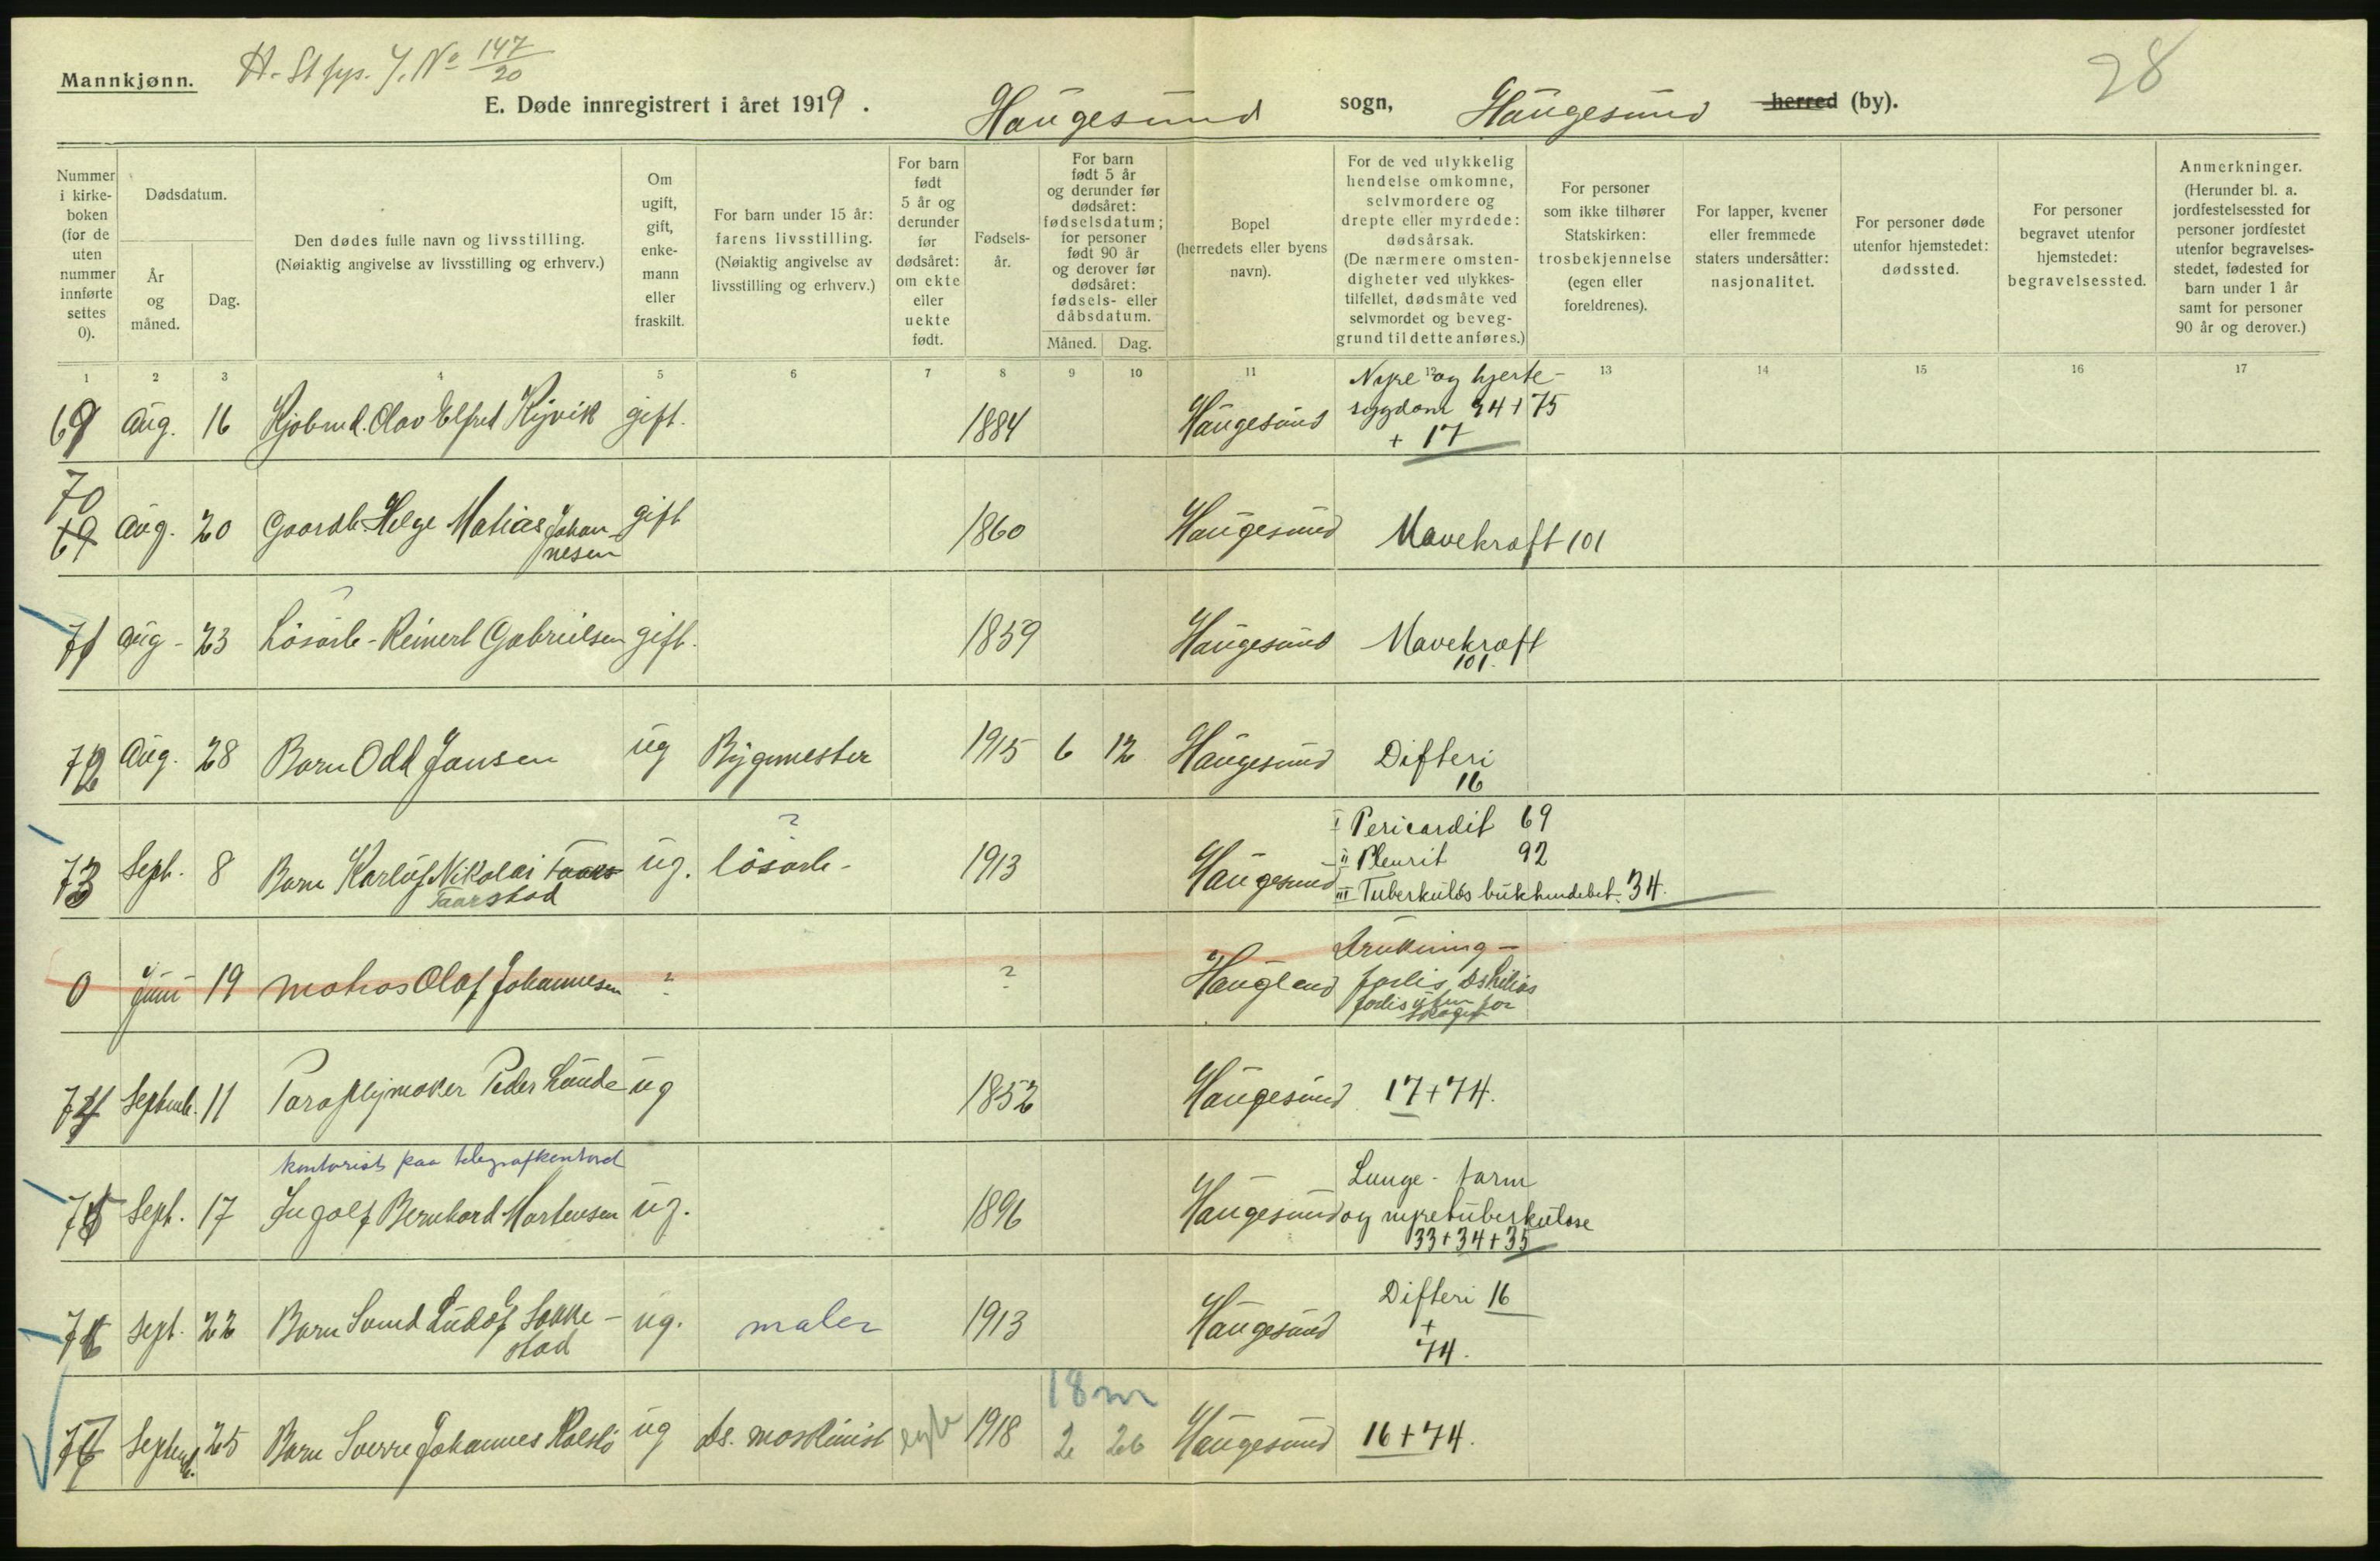 Mannkjønn.
H. St fys. J. No 147/20
28
E. Døde innregistrert i året 1919. Haugesund sogn, Haugesund herred (by).
Nummer i kirkeboken (for de uten nummer innførte settes 0).
Dødsdatum.
År og måned.
Dag.
Den dødes fulle navn og livsstilling.
(Nøiaktig angivelse av livsstilling og erhverv.)
Om ugift, gift, enkemann eller fraskilt.
For barn under 15 år: farens livsstilling.
(Nøiaktig angivelse av livsstilling og erhverv.)
For barn født 5 år og derunder før dødsåret: om ekte eller uekte født.
Fødsels-år.
For barn født 5 år og derunder før dødsåret: fødselsdatum; for personer født 90 år og derover før dødsåret: fødsels- eller dåbsdatum.
Måned. Dag.
Bopel (herredets eller byens navn).
For de ved ulykkelig hendelse omkomne, selvmordere og drepte eller myrdede: dødsårsak.
(De nærmere omstendigheter ved ulykkestilfellet, dødsmåte ved selvmordet og beveggrund til dette anføres.)
For personer som ikke tilhører Statskirken: trosbekjennelse (egen eller foreldrenes).
For lapper, kvener eller fremmede staters undersåtter: nasjonalitet.
For personer døde utenfor hjemstedet: dødssted.
For personer begravet utenfor hjemstedet: begravelsessted.
Anmerkninger.
(Herunder bl. a. jordfestelsessted for personer jordfestet utenfor begravelsesstedet, fødested for barn under 1 år samt for personer 90 år og derover.)
1 2 3 4 5 6 7 8 9 10 11 12 13 14 15 16 17
69 Aug. 16 Kjøbmd. Olav Elfred Kyvik gift. 1884 Haugesund Nyre og hjerte-
sygdom 34+75
+ 17
70
69 Aug. 20 Gaardb. Helge Matias Johan-
nesen gift 1860 Haugesund Mavekræft 101
71 Aug - 23 Lösarb - Reinert Gabrielsen gift. 1859 Haugesund Mavekræft
101.
72 Aug. 28 Barn Odd Jansen ug Bygmester 1915 6 12 Haugesund Difteri
16
73 Sept. 8 Barn Karluf Nikolai Taars
Taarstad ug. lösarb - ? 1913 Haugesund I Pericardit 69
II Pleurit 92
III Tuberkuløs bukhindebet. 34.
0 Juni 19 matros Olaf Johannesen ? ? Haugland Drukning -
forlis
forlis
74 Septemb. 11 Paraplymaker Peder Lunde ug 1852 Haugesund 17+74.
kontorist paa telegrafkontoret
75 Sept. 17 Ingolf Bernhard Mortensen ug. 1896 Haugesund Lunge- tarm
og nyretuberkulose
33+34+35
76 Sept. 22 Barn Ludolf Sokke-
stad ug. maler 1913 Haugesund Difteri 16
+
74.
18 m
Septemb. 25 Barn Sverre Johannes ug ds. maskinist egte 1918 2 26 Haugesund 16+74.